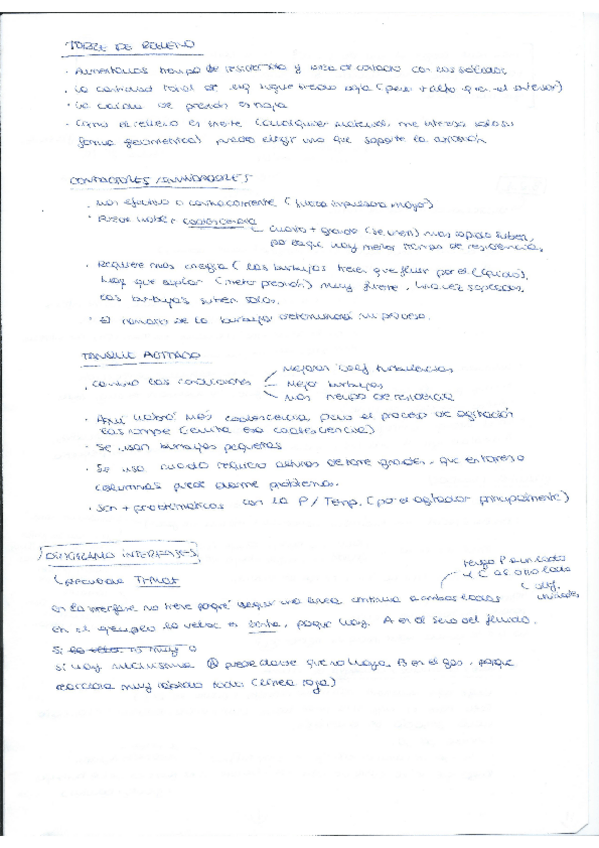 TORRE DE RELLENO
· Aumentamos tiempo de residencia y área de contacto con los sólidos
· La cantidad total de liq sigue siendo baja (pero + alto que el anterior)
· La caída de presión es baja
· Como el relleno es inerte (cualquier material, me interesa solo su
forma geométrica) puedo elegir uno que soporte la corrosión
CONTACTORES / BURBUJEADORES
· Más efectivo o contracorriente (fuerza impulsora mayor)
· Puede haber coalescencia
cuanto + grande (se unen) más rápido suben,
por lo que hay menor tiempo de residencia.
· Requiere más energía (las burbujas tienen que fluir por el líquido).
Hay que soplar (meter presión) muy fuerte. Una vez sopladas,
las burbujas suben solas.
· El tamaño de la burbuja determinará mi proceso.
TANQUE AGITADO
· Cambio las condiciones
Mejores coef turbulencias
Mejor burbujas
Más tiempo de residencia
· Aquí habrá más coalescencia pero el proceso de agitación
las rompe (evita esa coalescencia)
· Se usan burbujas pequeñas
· Se usa cuando requiero alturas de torre grandes, que en torres o
columnas puede darme problemas.
· Son + problemáticas con la P / Temp. (por el agitador principalmente)
DIAGRAMA INTERFASES
tengo P a un lado
y C de otro lado
( dif.
unidades
en la interfase no tiene porqué seguir una línea continua a ambos lados
en el ejemplo la veloc es lenta, porque hay A en el seno del fluido.
si hay muchísima B puede darse que no haya B en el gas, porque
reacciona muy rápido todo (línea roja)